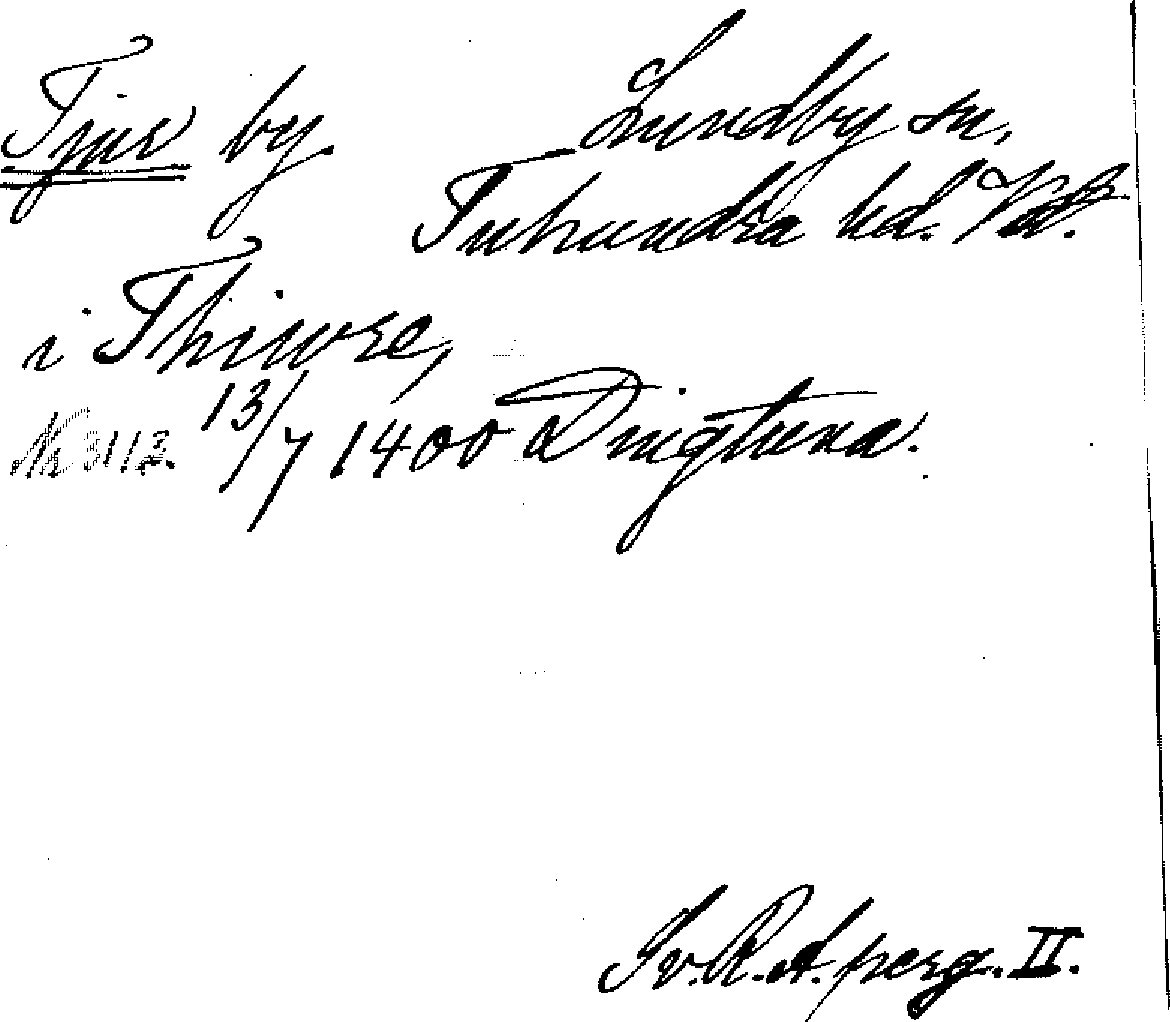 Tjur by. Lundby sn,
Tuhundra hd. Vstml.
i Thiwre,
Nr 3113. 13/7 1400 Dingtuna.
Sv. R. A. perg. II.